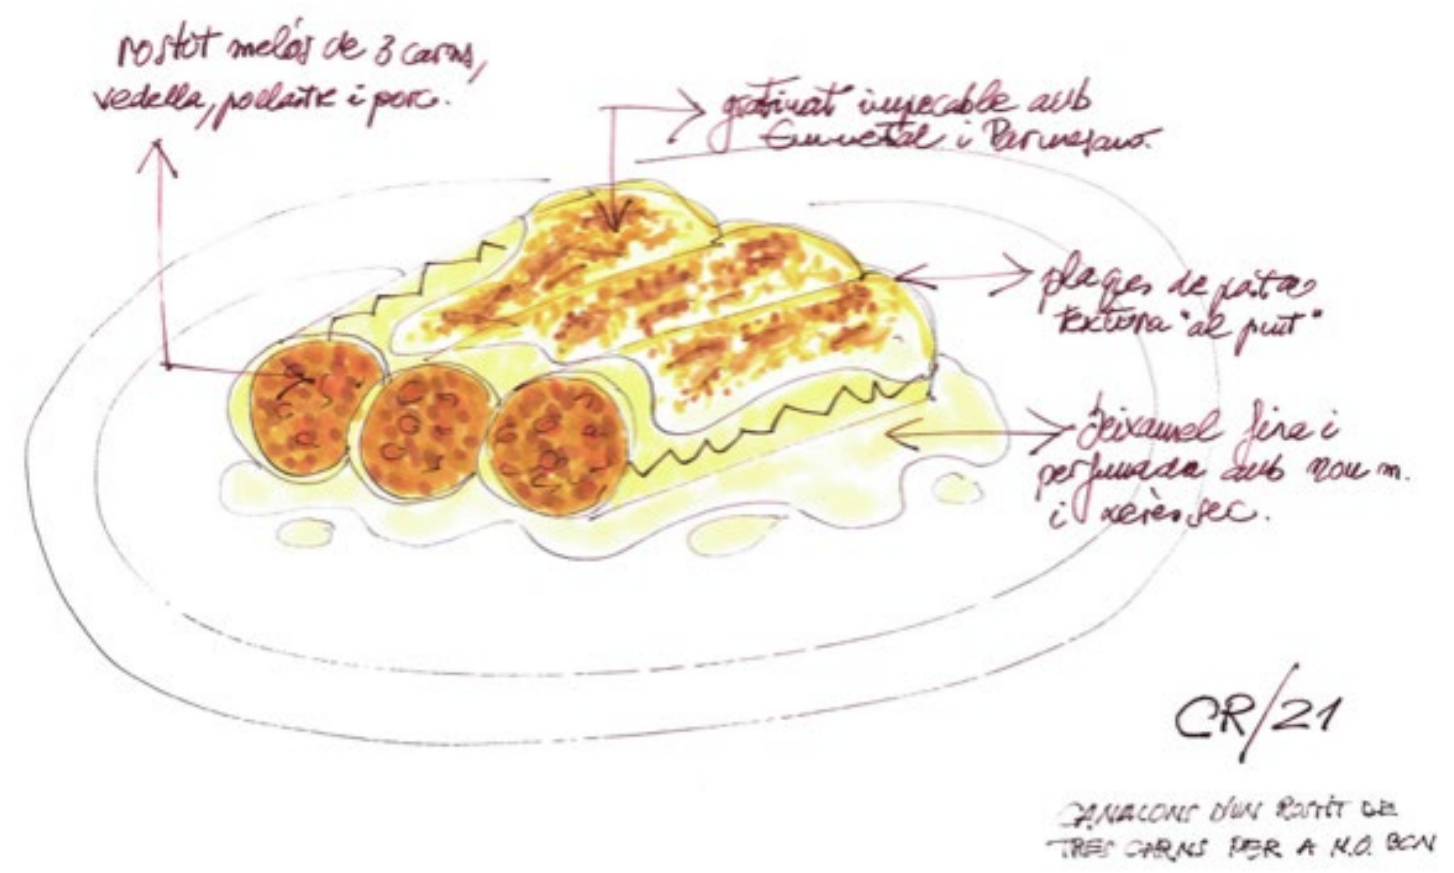 rostit melós de 3 carns,
vedella, pollastre i porc.
gratinat impecable amb
Emmetal i Parmesano.
plaques de pasta
textura "al punt"
Beixamel fina i
perfumada amb nou m.
i xerès sec.
CR/21
CANALONS D'UN ROSTIT DE
TRES CARNS PER A M.O. BCN